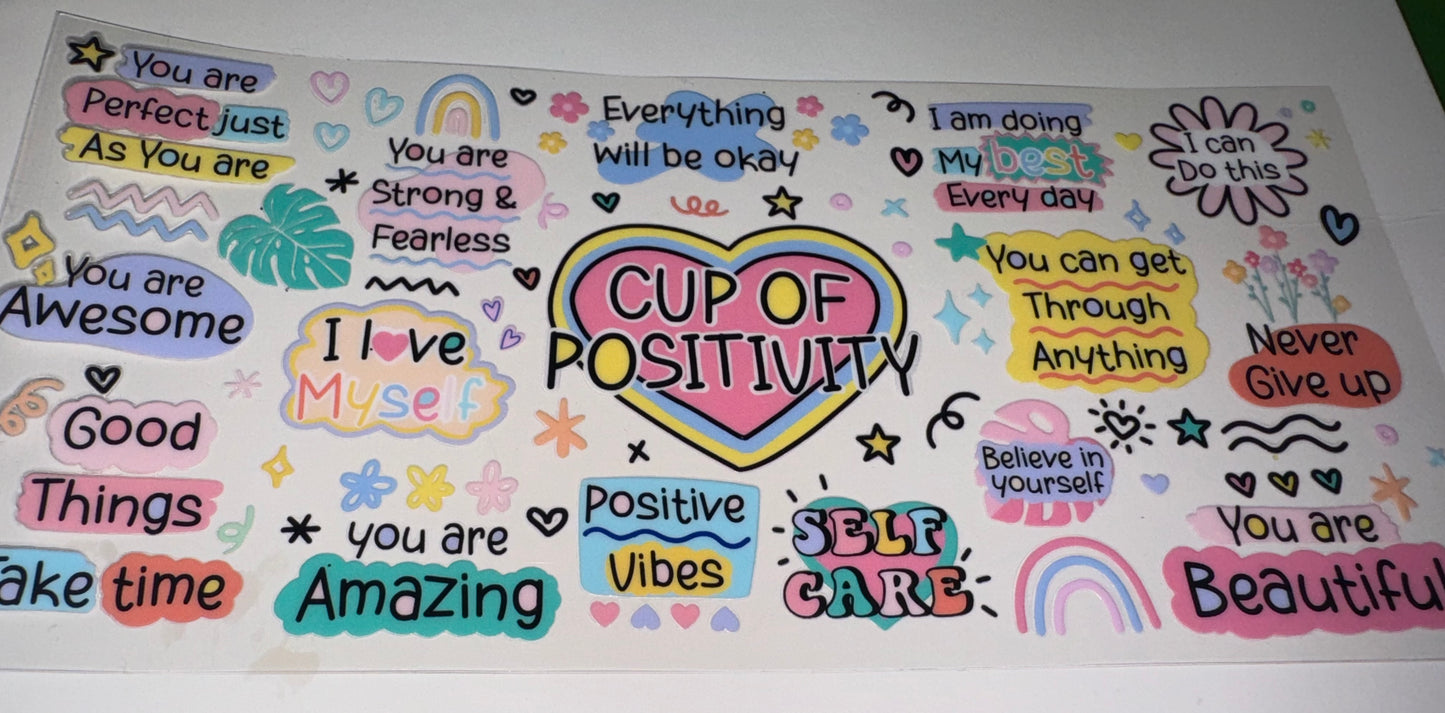 You are
Perfect just
As You are
You are
Strong &
Fearless
Everything
Will be okay
I am doing
My best
Every day
I can
Do this
You are
Awesome
I love
Myself
CUP OF
POSITIVITY
You can get
Through
Anything
Never
Give up
Good
Things
Take time
you are
Amazing
Positive
Vibes
SELF
CARE
Believe in
yourself
You are
Beautiful